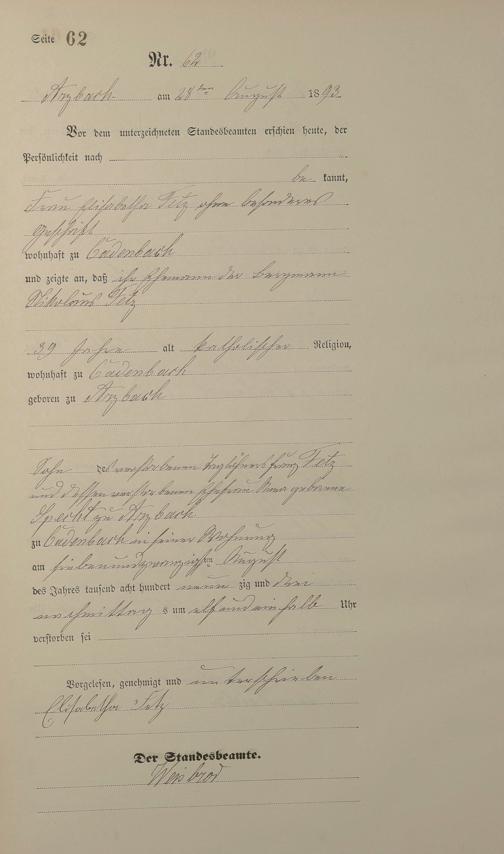 Seite 62
Nr. 62
Arzbach am 28ten August 1893
Vor dem unterzeichneten Standesbeamten erschien heute, der
Persönlichkeit nach
be kannt,
Frau Elisabetha Fetz ohne besonderes
Geschäft
wohnhaft zu Cadenbach
und zeigte an, daß ihr Ehemann der Bergmann
Nikolaus Fetz
39 Jahre alt katholischer Religion,
wohnhaft zu Cadenbach
geboren zu Arzbach
Sohn des verstorbenen Taglöhners Franz Fetz
und dessen verstorbenen Ehefrau Anna geborene
Specht zu Arzbach
zu Cadenbach in seiner Wohnung
am siebenundzwanzigsten August
des Jahres tausend acht hundert neun zig und drei
nachmittag s um elf und ein halb Uhr
verstorben sei
Vorgelesen, genehmigt und unterschrieben
Elisabetha Fetz
Der Standesbeamte.
Weisbrod